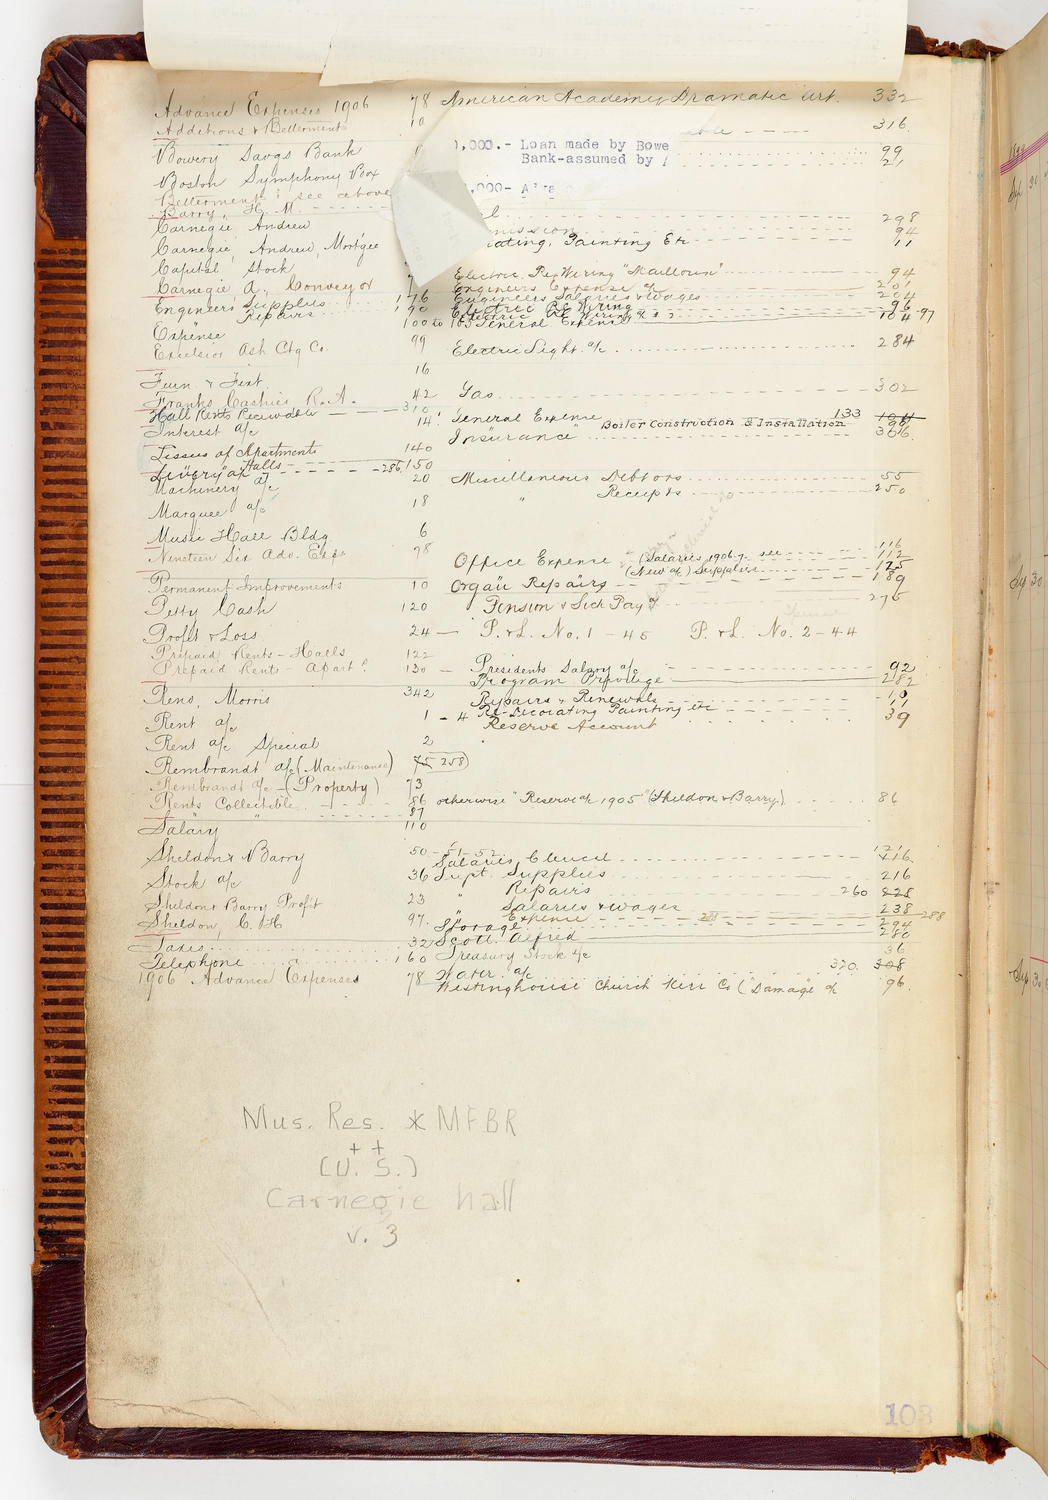 Advance Expenses 1906 78
Additions & Betterments 10
Bowery Savgs Bank
Boston Symphony Box
Betterments: see above
Barry, H. M.
Carnegie Andrew
Carnegie, Andrew, Mortgee
Capital Stock
Carnegie A., Conveyor
Engineers' Supplies 176
" Repairs 190
Expense 100 to 103
Excelsior Ash Ctg Co. 99
16
Furn. & Fixt.
Franko Cashier R. A. 42
Hall Rents Receivable 310
Interest a/c 14
Lessees of Apartments 140
" " Halls 150
Livery a/c 286 20
Machinery a/c
Marquee a/c 18
Music Hall Bldg. 6
Nineteen Six Adv. Exps 78
Permanent Improvements 10
Petty Cash 120
Profit & Loss 24 — P. & L. No. 1 - 45 P. & L. No. 2 - 44
Prepaid Rents - Halls 122
Prepaid Rents - Apart's 130
Reno, Morris 342
Rent a/c 1 - 4
Rent a/c Special 2
Rembrandt a/c (Maintenance) 75 258
Rembrandt a/c - (Property) 73
Rents Collectible 86 otherwise "Reserve a/c 1905" (Sheldon & Barry) 86
" " 87
Salary 110
Sheldon & Barry 50 - 51 - 52
Stock a/c 36
Sheldon & Barry Profit 23
Sheldon, C. H. 97.
Taxes 32
Telephone 160
1906 Advance Expenses 78
American Academy Dramatic Art. 332
able 316.
,000.- Loan made by Bowe 99
Bank-assumed by 21
,000-
298
mission 94
ating, Painting Etc 11
Electric Re-Wiring "Mailloux" 94
Engineers Expense a/c 201
Engineers Salaries & Wages 204
Electric Re Wiring 96
Electric Re Wiring 104 97
General Expense
Electric Light a/c 284
Gas 302
General Expense 133 104
Boiler Construction & Installation
Insurance 306
Miscellaneous Debtors 55
" Receipts 250
116
Office Expense (Salaries 1906-7- see 112
(New a/c) Supplies 125
Organ Repairs 189
Pension & Sick Pay a/c 276
Presidents Salary a/c 92
Program Privilege 282
Repairs & Renewals 10
Re-Decorating Painting etc 11
Reserve Account 39
Salaries Clerical 416
Supt. Supplies 216
" Repairs 260 228
" Salaries & Wages 238
" Expense 288
Storage 294
Scott. Alfred 280
Treasury Stock a/c 36
Water a/c 320. 308
Westinghouse Church Kerr Co ("Damage" a/c 96.
Mus. Res. * MFBR
+ +
(U. S.)
Carnegie hall
v. 3
103
Sep 30
Sep 30
Sep 30